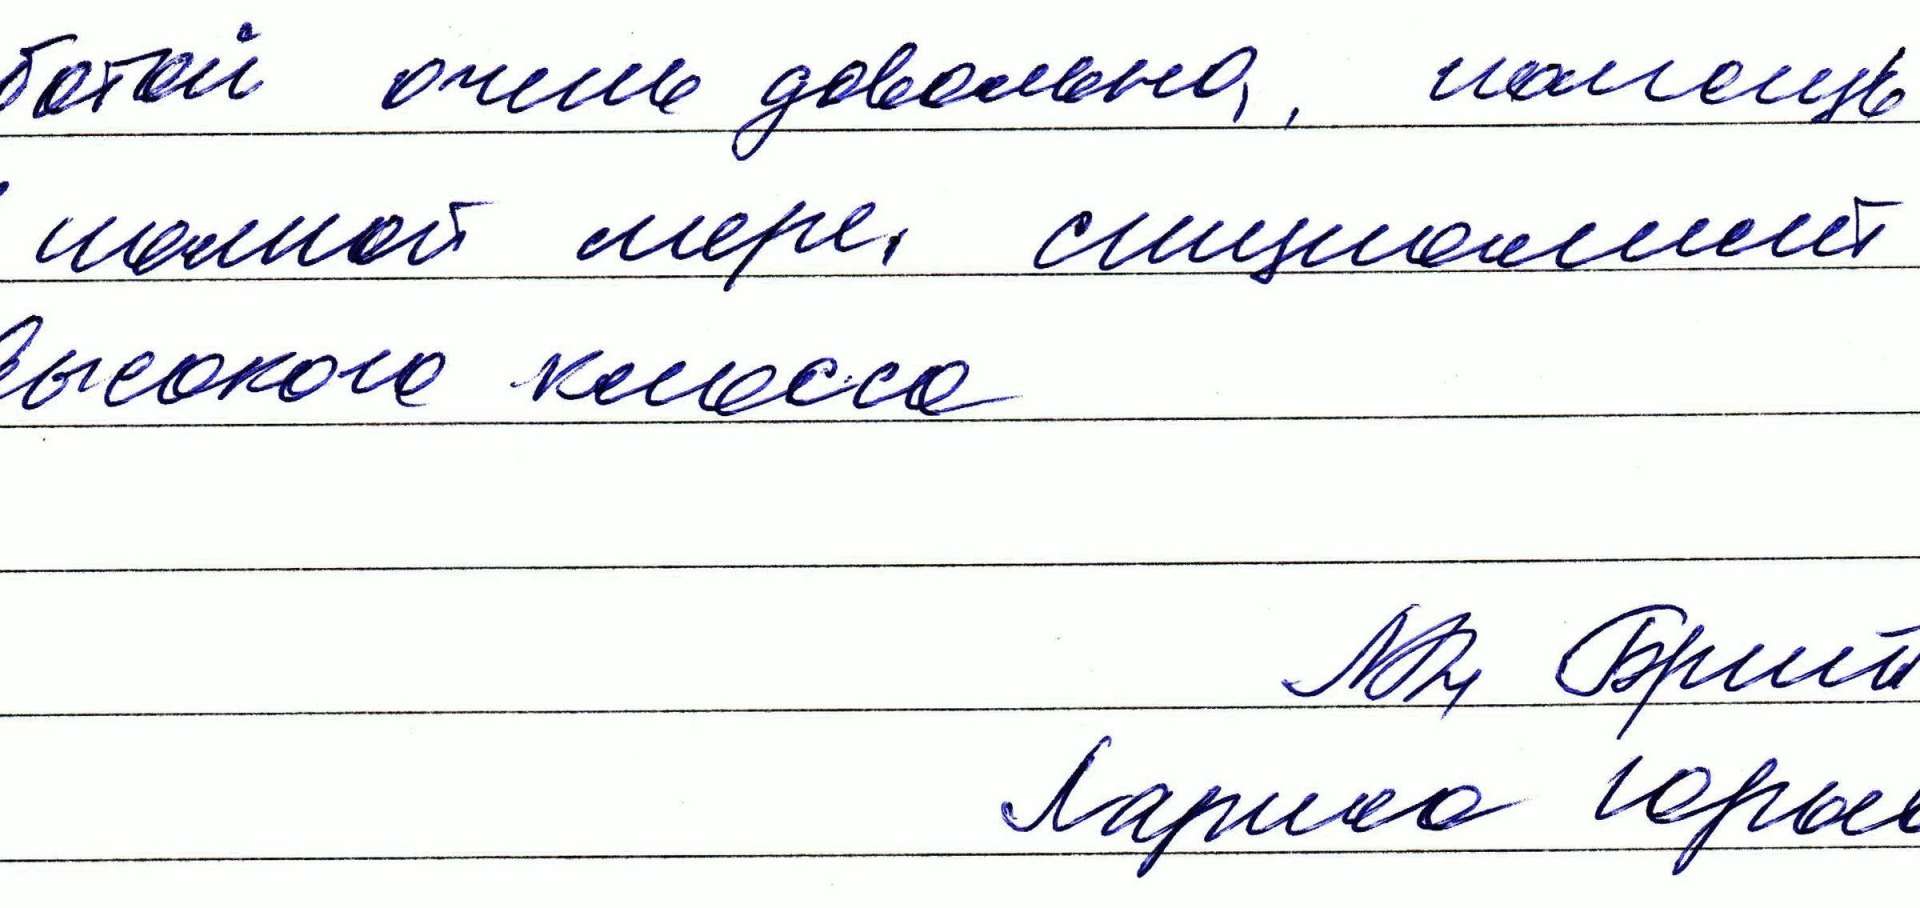 ботой очень довольна, помощь
полной мере, специалист
высокого класса
Брит
Лариса Юрьев